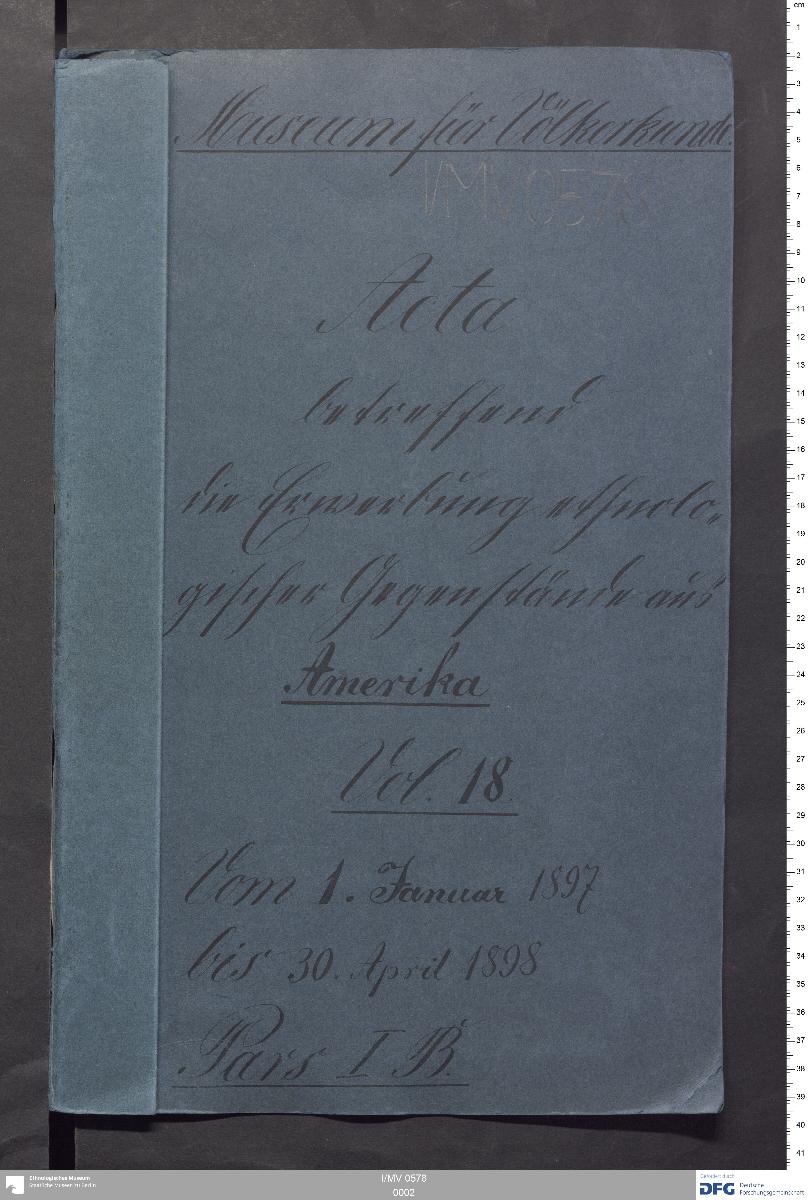 Museum für Völkerkunde.
I/MV 0578
Acta
betreffend
die Erwerbung ethnolo-
gischer Gegenstände aus
Amerika
Vol. 18.
Vom 1. Januar 1897
bis 30. April 1898
Pars I B.
cm
1
2
3
4
5
6
7
8
9
10
11
12
13
14
15
16
17
18
19
20
21
22
23
24
25
26
27
28
29
30
31
32
33
34
35
36
37
38
39
40
41
Ethnologisches Museum
Staatliche Museen zu Berlin
I/MV 0578
0002
Gefördert durch
DFG Deutsche
Forschungsgemeinschaft